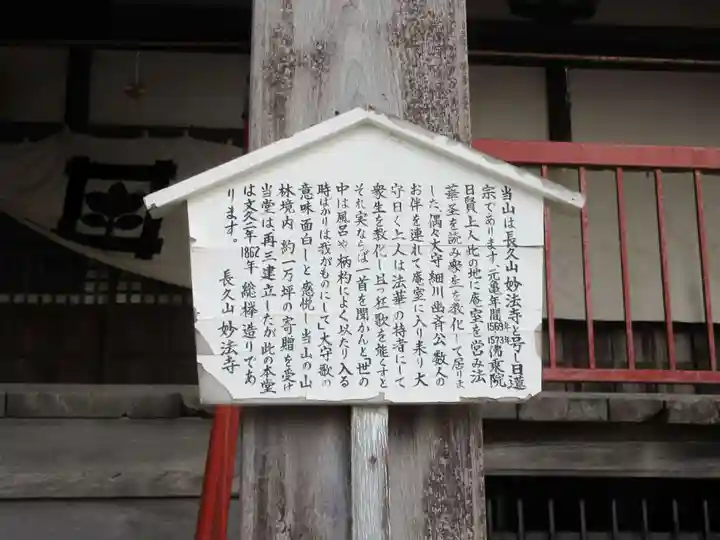 当山は長久山妙法寺と号し日蓮
宗であります。元亀年間1569年1573年清寒院
日賢上人此の地に庵室を営み法
華圣を読み衆生を教化して居りま
した、偶々大守細川幽斉公数人の
お伴を連れて庵室に入り来り大
守曰く上人は法華の持者にして
衆生を教化し且つ狂歌を能くすと
それ実ならば一首を聞かんと「世の
中は風呂や柄杓によく似たり入る
時ばかりは我がものにして」大守歌の
意味面白しと感悦し当山の山
林境内約一万坪の寄贈を受け
当堂は再三建立したが此の本堂
は文久二年1862年総欅造りであ
ります。
長久山妙法寺